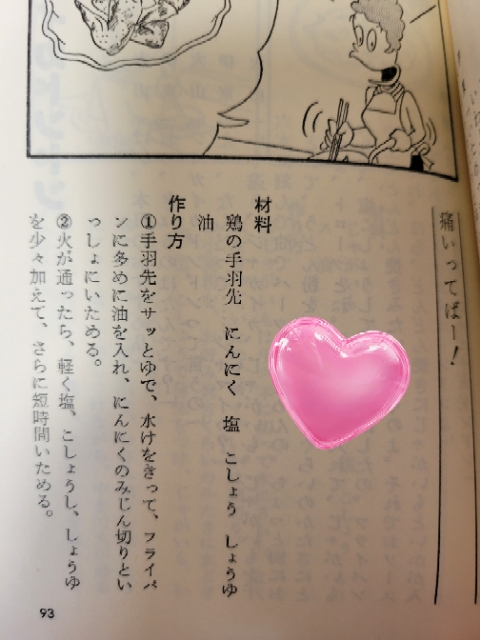 痛いってばー！
材料
鶏の手羽先　にんにく　塩　こしょう　しょうゆ
油
作り方
①手羽先をサッとゆで、水けをきって、フライパ
ンに多めに油を入れ、にんにくのみじん切りとい
っしょにいためる。
②火が通ったら、軽く塩、こしょうし、しょうゆ
を少々加えて、さらに短時間いためる。
93